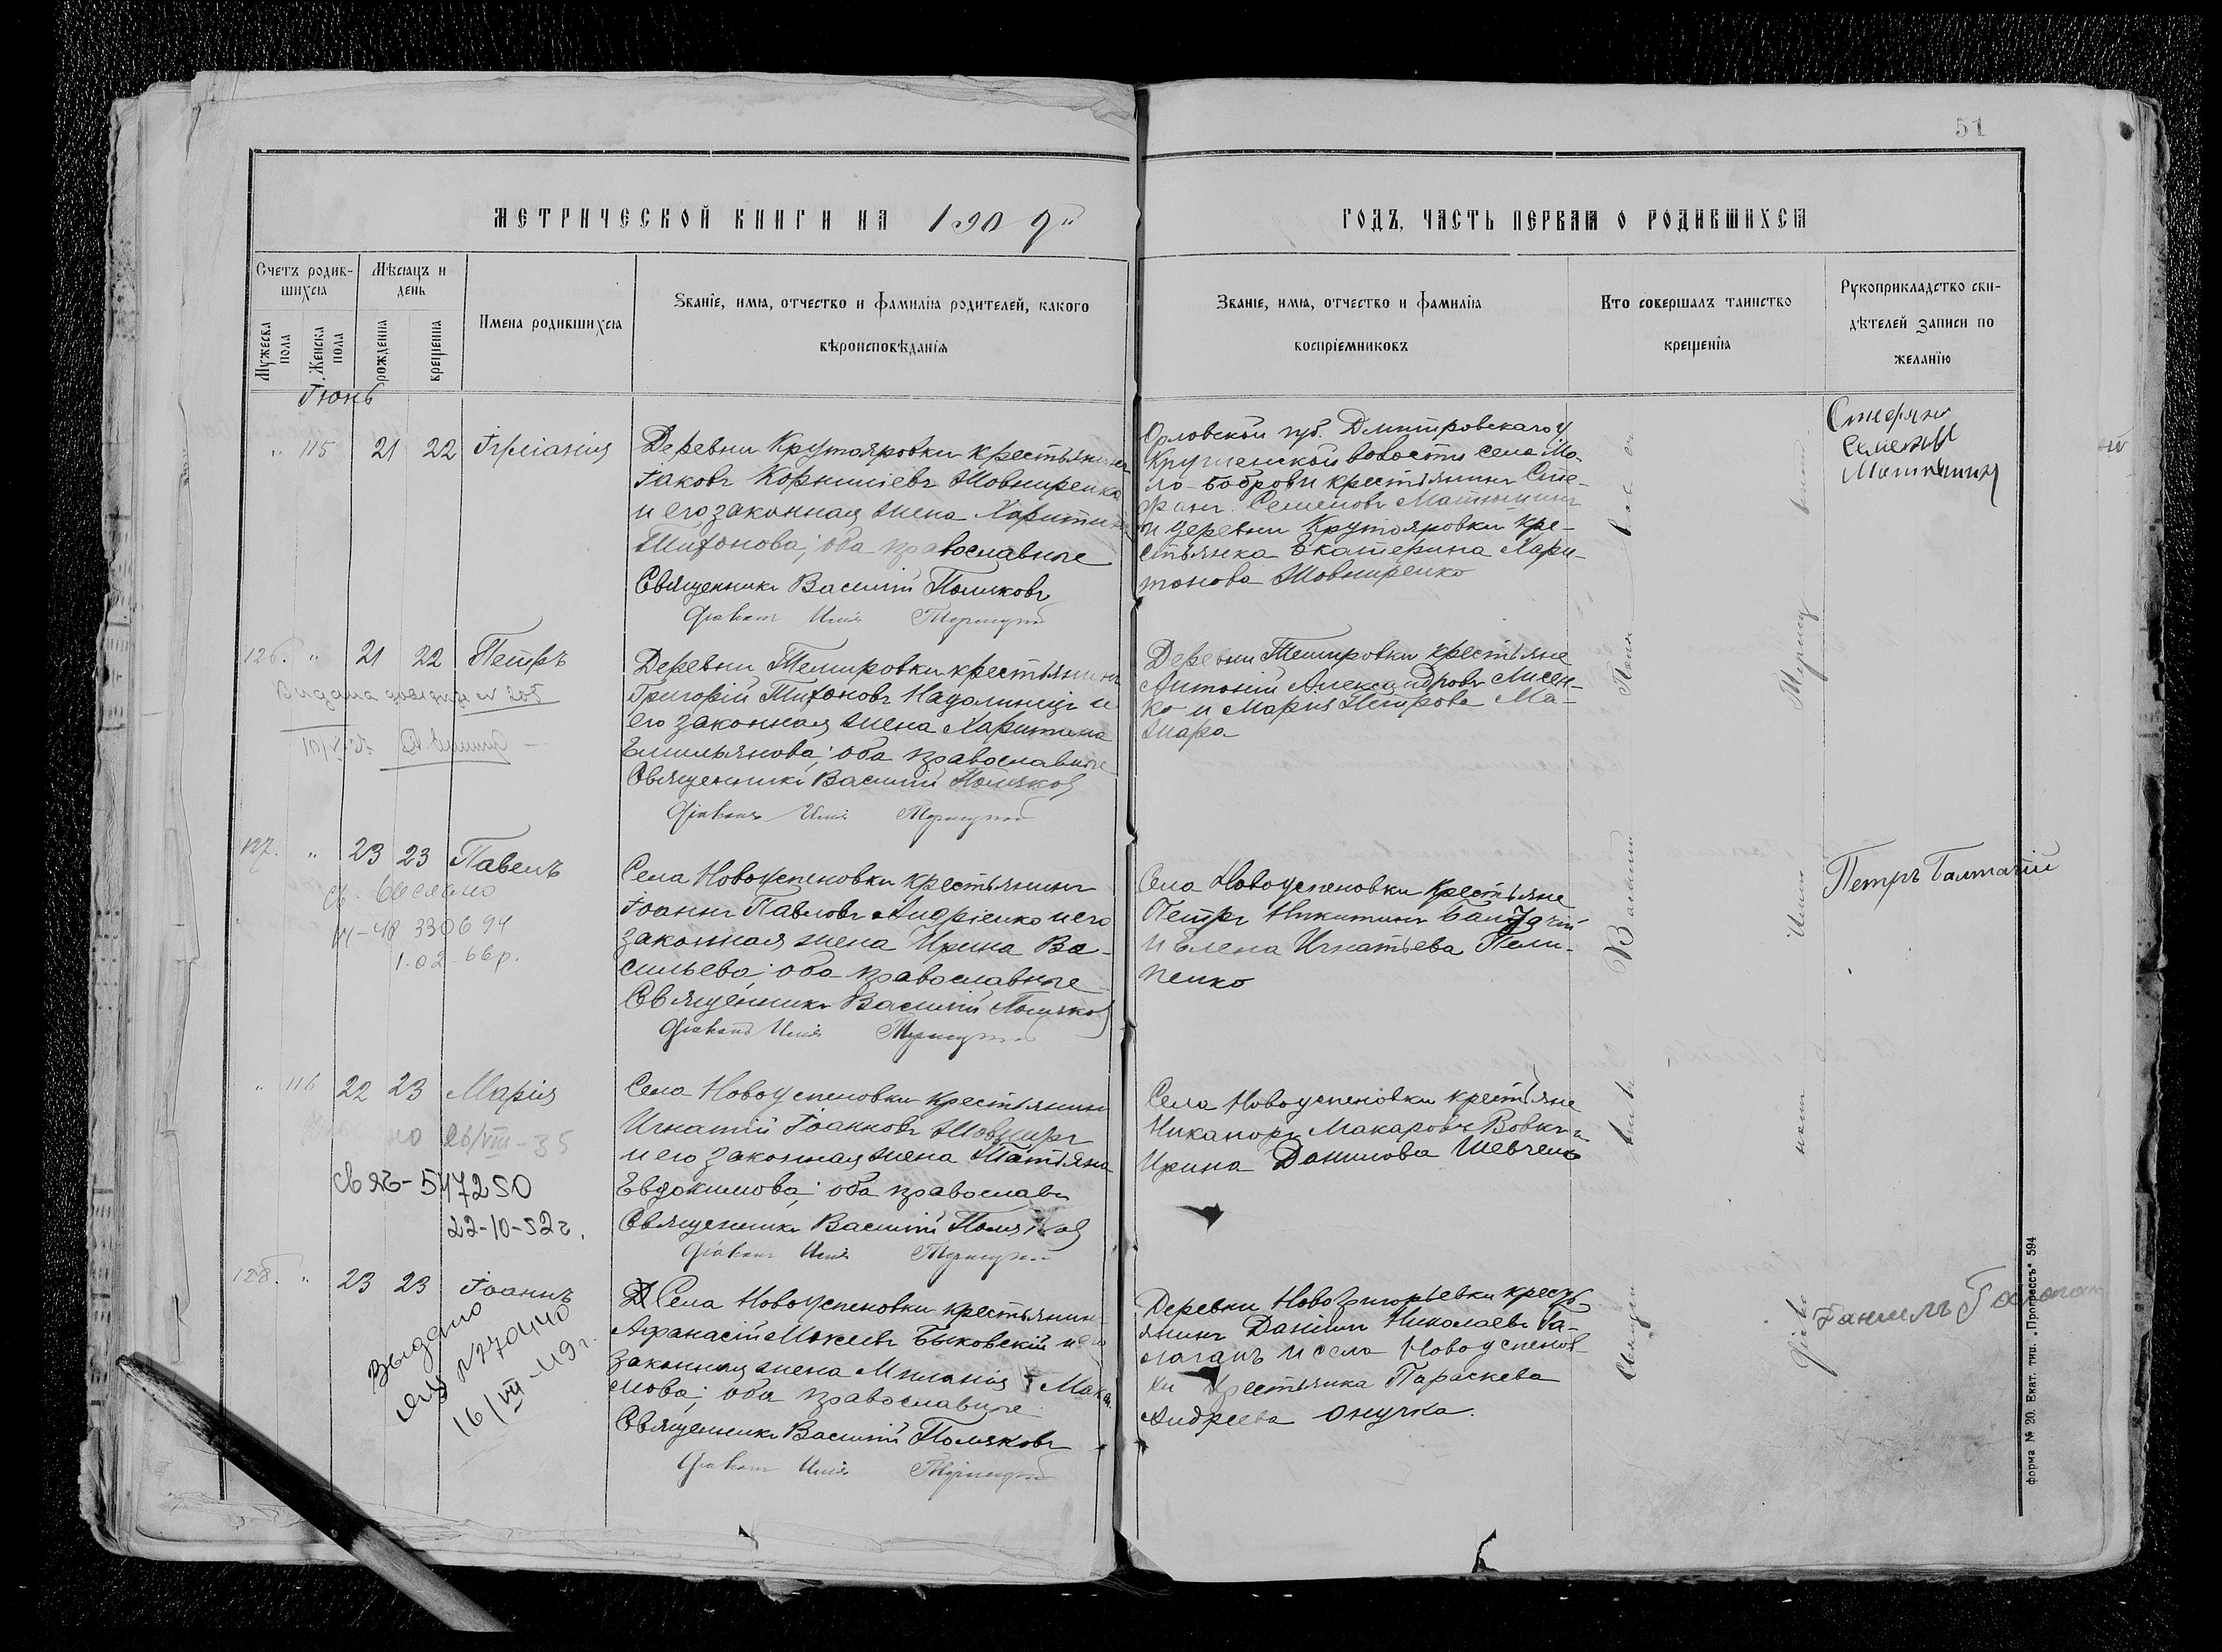 51
МЕТРИЧЕСКОЙ КНИГИ НА 1909й
ГОДЪ, ЧАСТЬ ПЕРВАЯ О РОДИВШИХСЯ
Счетъ родив-
шихся
Мѣсяцъ и
день
Мужеска
пола
Женска
пола
рожденія
крещенія
Имена родившихся
Званіе, имя, отчество и фамилія родителей, какого
вѣроисповѣданія
Званіе, имя, отчество и фамилія
воспріемниковъ
Кто совершалъ таинство
крещенія
Рукоприкладство сви-
дѣтелей записи по
желанію
Іюнь
" 115 21 22
Деревни Крутояровки крестьянинъ
Іаковъ Корниліевъ Жовниренко
и его законная жена Харитина
Тихонова; оба православные
Священникъ Василій Поляковъ
Діаконъ Илія
Орловской губ. Дмитровскаго у
волости села Мо-
ло-Боброви крестьянинъ Сте-
фанъ Семеновъ Матюшинъ
и деревни Крутояровки кре-
стьянка Екатерина Хари-
тонова Жовниренко
Стефанъ
Семеновъ
126. " 21 22 Петръ
Деревни Темировки крестьянинъ
Григорій Тихоновъ Надолинецъ и
его законная жена Харитина
Емельянова; оба православные
Священникъ Василій Поляковъ
Діаконъ Илія
Деревни Темировки крестьяне
Антоній Александровъ Лисен-
ко и Марія Петрова Ма-
жара
127. " 23 23 Павелъ
1-02-66р.
Села Новоуспеновки крестьянинъ
Іоаннъ Павловъ Андріенко и его
законная жена Ирина Ва-
сильева; оба православные
Священникъ Василій Поляковъ
Діаконъ Илія
Села Новоуспеновки крестьяне
Петръ Никитинъ
и Елена Игнатьева Пели-
пенко
Петръ
" 116 22 23 Марія
26/VIII-35
св ЯБ-547250
22-10-52г.
Села Новоуспеновки крестьянинъ
Игнатій Іоанновъ Жовниръ
и его законная жена Татіяна
Евдокимова; оба православн
Священникъ Василій Поляков
Діаконъ Илія
Села Новоуспеновки крестьяне
Никаноръ Макаровъ Вовкъ и
Ирина Данилова Шевченко
128. " 23 23 Іоаннъ
выдано
16/VII-49г.
Села Новоуспеновки крестьянинъ
Афанасій Моисеевъ Быковскій и его
законная жена Миланія Мака-
мова; оба православные
Священникъ Василій Поляковъ
Діаконъ Илія
Деревни Новогригорьевки кресть-
янинъ Даніилъ Николаевъ Га-
лаганъ и села Новоуспенов-
ки крестьянка Параскева
Андреева Онучка.
Священникъ
Василій
Діаконъ
Илія
форма № 20. Екат. тип. „Прогрессъ" 594